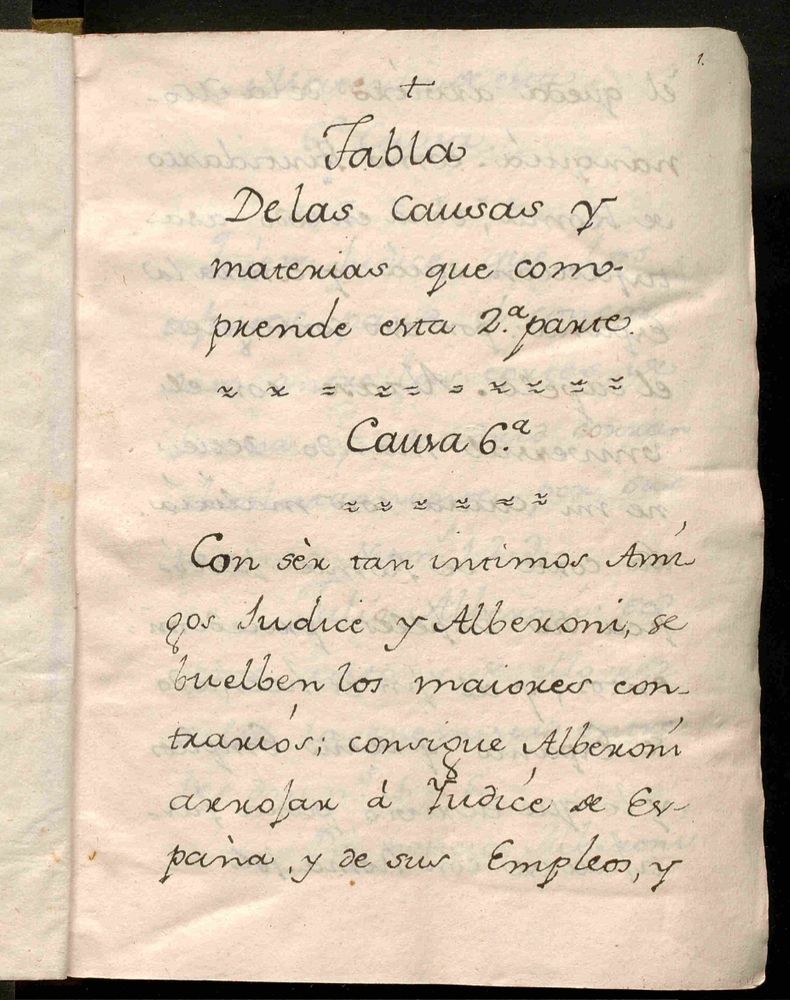 1.
+
Tabla
De las Causas y
materias que com-
prende esta 2.ª parte.
Causa 6.ª
Con sèr tan intimos Ami
gos Iudice y Alberoni, se
buelben los maiores con-
trariós; consigue Alberoni
arrojar à Iudice de Es-
paña, y de sus Empleos, y